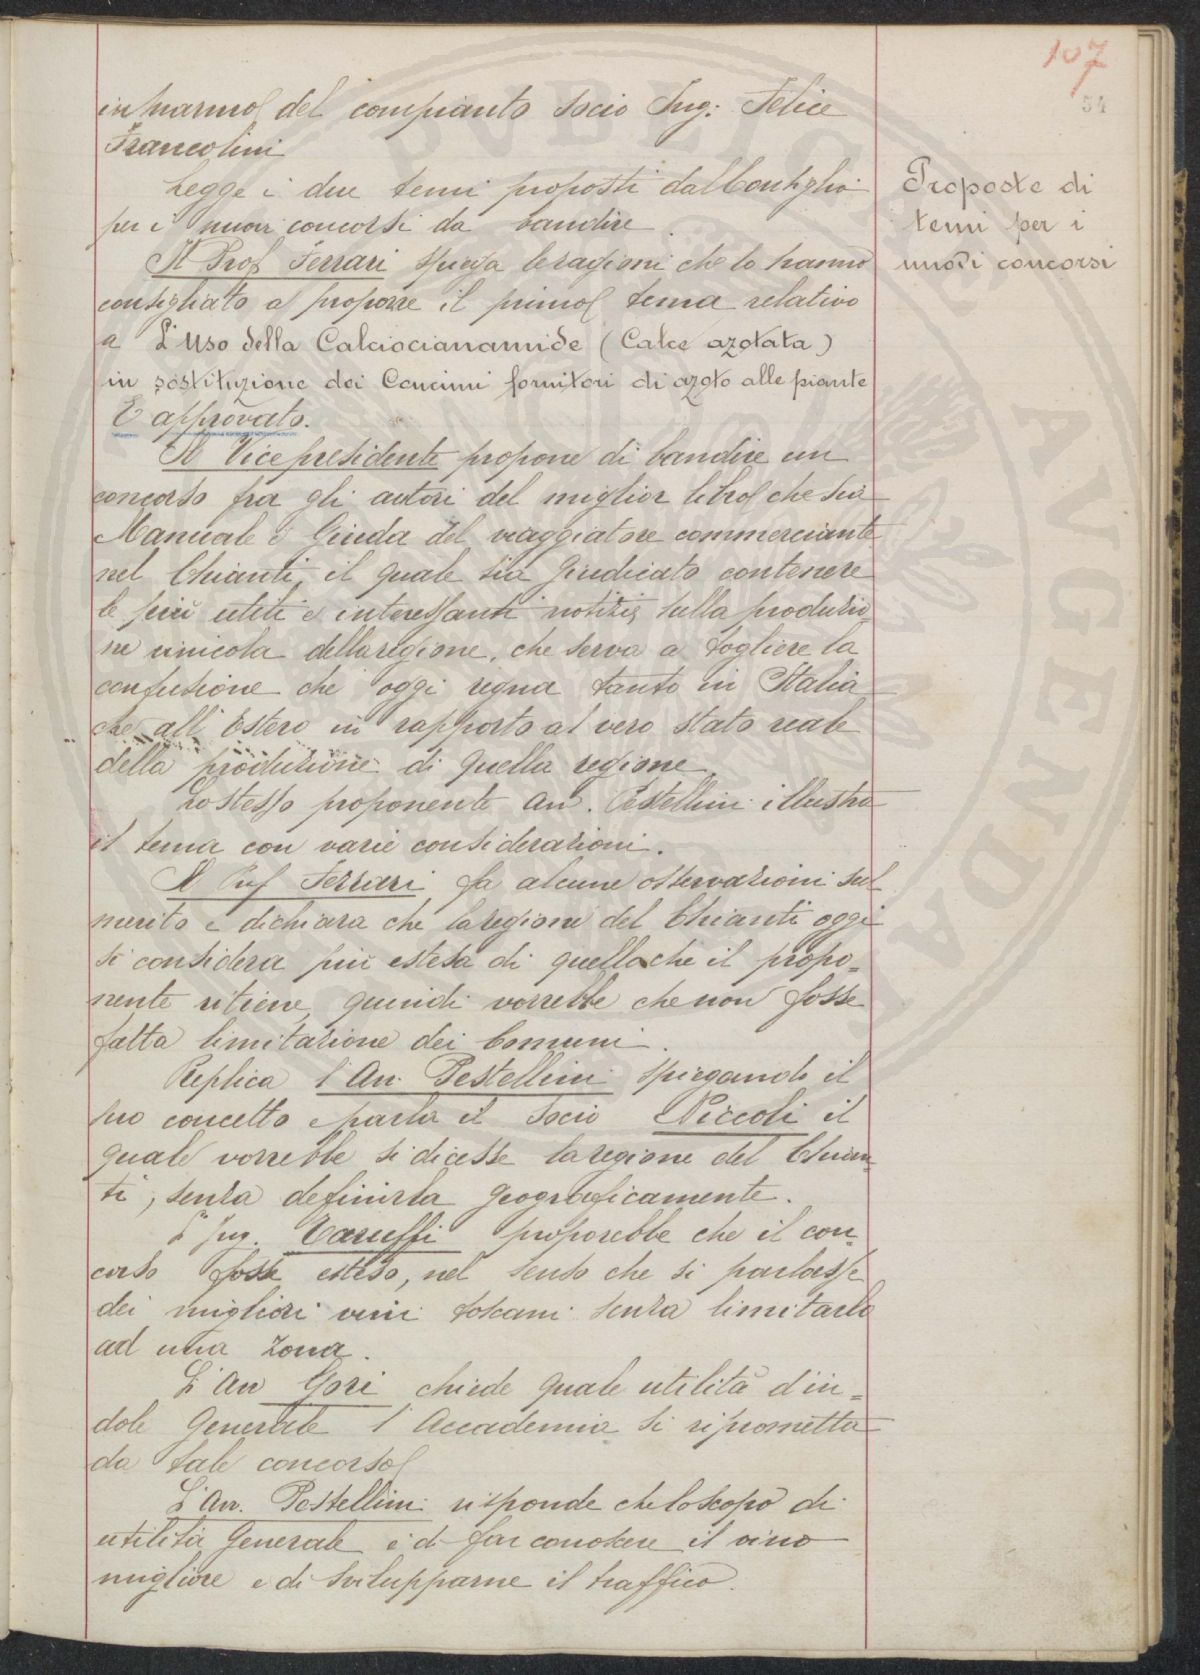 107
54
in marmo del compianto socio Ing: Felice
Francolini
Legge i due temi proposti dal Consiglio
per i nuovi concorsi da bandire.
Il Prof. Ferrari spiega le ragioni che lo hanno
consigliato a proporre il primo tema relativo
a L'Uso della Calciocianamide (Calce azotata)
in sostituzione dei Concimi fornitori di azoto alle piante
È approvato.
Il Vicepresidente propone di bandire un
concorso fra gli autori del miglior libro che sia
Manuale o Guida del viaggiatore commerciante
nel Chianti, il quale sia giudicato contenere
le più utili e interessanti notizie sulla produzio-
ne vinicola della regione, che serva a togliere la
confusione che oggi regna tanto in Italia
che all'Estero in rapporto al vero stato reale
della produzione di quella regione
Lo stesso proponente Avv. Pestellini illustra
il tema con varie considerazioni.
Il Prof Ferrari fa alcune osservazioni sul
merito e dichiara che la regione del Chianti oggi
si considera più estesa di quello che il propo=
nente ritiene, quindi vorrebbe che non fosse
fatta limitazione dei Comuni.
Replica l'Avv. Pestellini spiegando il
suo concetto e parla il socio Niccoli il
quale vorrebbe si dicesse la regione del Chian-
ti, senza definirla geograficamente.
L'Ing. Taruffi proporebbe che il con-
corso fosse esteso, nel senso che si parlasse
dei migliori vini toscani senza limitarlo
ad una zona.
L'Avv Gori chiede quale utilità d'in=
dole generale l'Accademia si riprometta
da tale concorso
L'Avv. Pestellini risponde che lo scopo di
utilità generale è di far conoscere il vino
migliore e di svilupparne il traffico.
Proposte di
temi per i
nuovi concorsi
PVBLICAE AVGENDAE